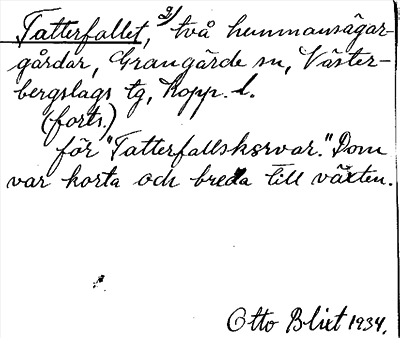 Tatterfallet, 3/ två hemmansägar-
gårdar, Grangärde sn, Väster-
bergslags tg, Kopp. l.
(forts.)
för "Tatterfallskorvar." Dom
var korta och breda till växten.
Otto Blixt 1934.